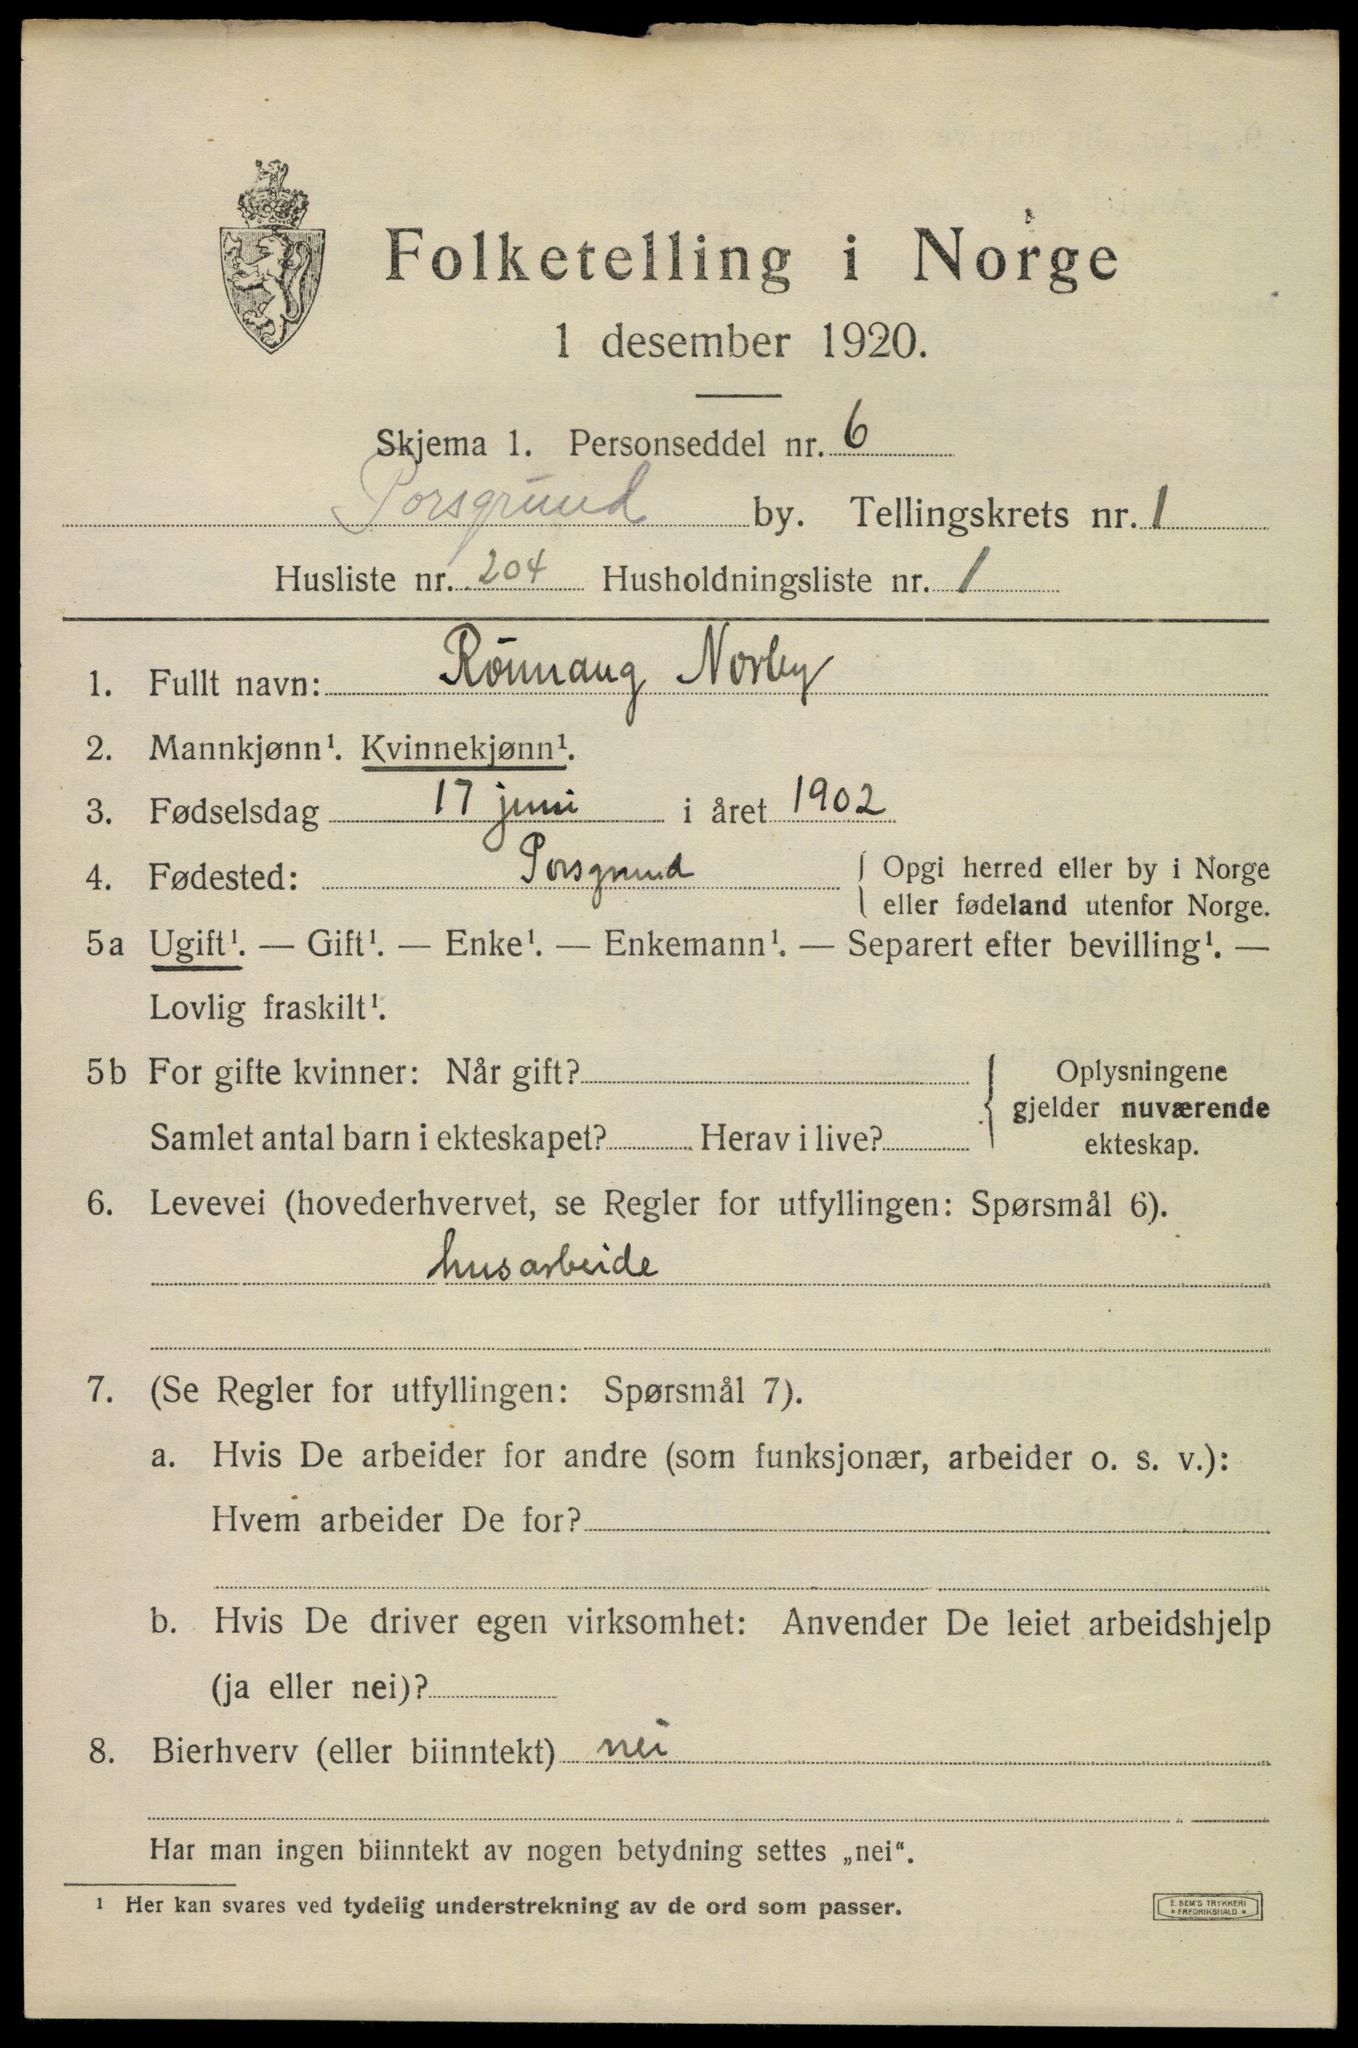 Folketelling i Norge
1 desember 1920.
Skjema 1. Personseddel nr. 6
Porsgrund by. Tellingskrets nr. 1
Husliste nr. 204 Husholdningsliste nr. 1
1. Fullt navn: Rönnaug Norby
2. Mannkjønn¹. Kvinnekjønn¹.
3. Fødselsdag 17 juni i året 1902
4. Fødested: Porsgrund { Opgi herred eller by i Norge
eller fødeland utenfor Norge.
5a Ugift¹. — Gift¹. — Enke¹. — Enkemann¹. — Separert efter bevilling¹. —
Lovlig fraskilt¹.
5b For gifte kvinner: Når gift? { Oplysningene
gjelder nuværende
Samlet antal barn i ekteskapet? Herav i live? ekteskap.
6. Levevei (hovederhvervet, se Regler for utfyllingen: Spørsmål 6).
husarbeide
7. (Se Regler for utfyllingen: Spørsmål 7).
a. Hvis De arbeider for andre (som funksjonær, arbeider o. s. v.):
Hvem arbeider De for?
b. Hvis De driver egen virksomhet: Anvender De leiet arbeidshjelp
(ja eller nei)?
8. Bierhverv (eller biinntekt) nei
Har man ingen biinntekt av nogen betydning settes „nei“.
¹ Her kan svares ved tydelig understrekning av de ord som passer.
E. SEM'S TRYKKERI
* FREDRIKSHALD *